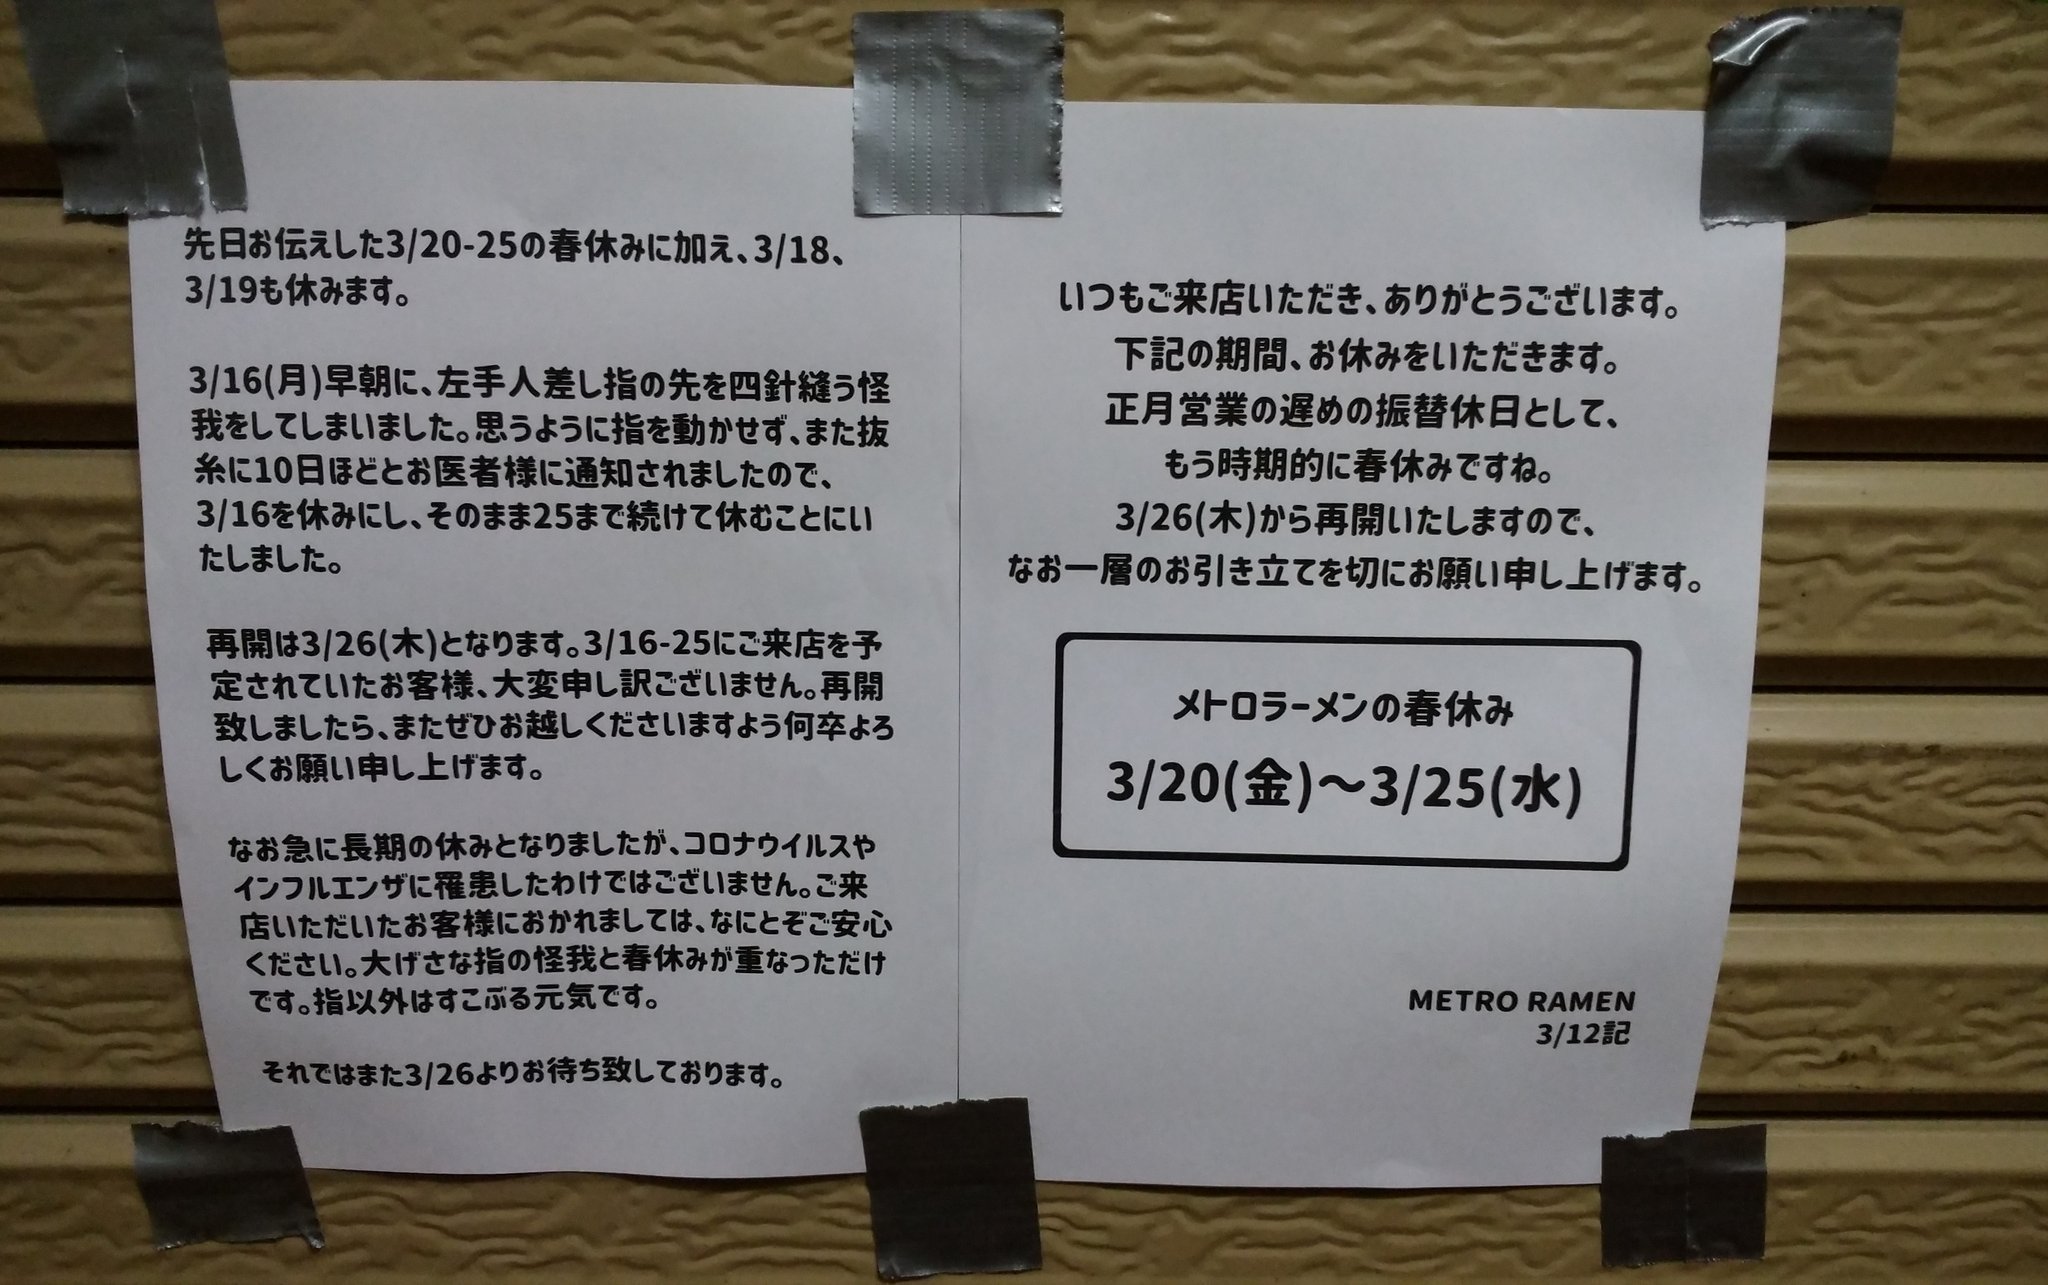 先日お伝えした3/20-25の春休みに加え、3/18、
3/19も休みます。
3/16(月)早朝に、左手人差し指の先を四針縫う怪
我をしてしまいました。思うように指を動かせず、また抜
糸に10日ほどとお医者様に通知されましたので、
3/16を休みにし、そのまま25まで続けて休むことにい
たしました。
再開は3/26(木)となります。3/16-25にご来店を予
定されていたお客様、大変申し訳ございません。再開
致しましたら、またぜひお越しくださいますよう何卒よろ
しくお願い申し上げます。
なお急に長期の休みとなりましたが、コロナウイルスや
インフルエンザに罹患したわけではございません。ご来
店いただいたお客様におかれましては、なにとぞご安心
ください。大げさな指の怪我と春休みが重なっただけ
です。指以外はすこぶる元気です。
それではまた3/26よりお待ち致しております。
いつもご来店いただき、ありがとうございます。
下記の期間、お休みをいただきます。
正月営業の遅めの振替休日として、
もう時期的に春休みですね。
3/26(木)から再開いたしますので、
なお一層のお引き立てを切にお願い申し上げます。
メトロラーメンの春休み
3/20(金)～3/25(水)
METRO RAMEN
3/12記